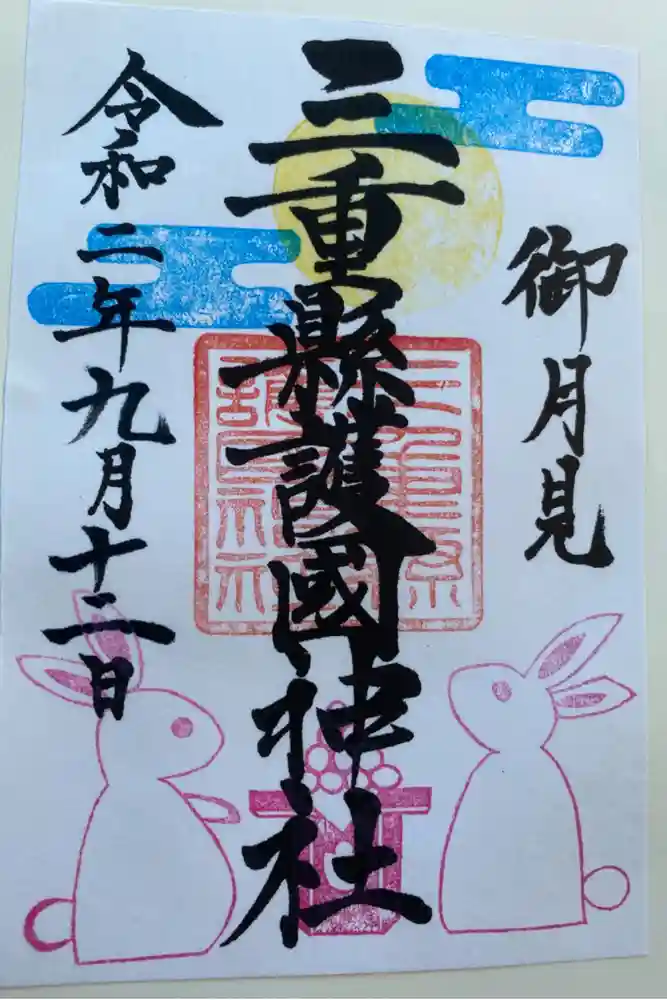 御月見
三重縣護國神社
令和二年九月十二日